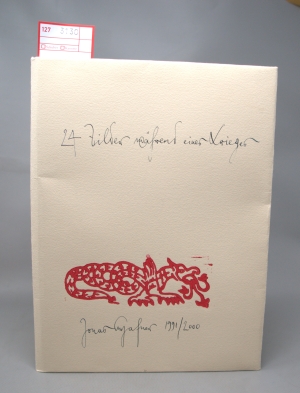 127 3130
24 Bilder während eines Krieges
Jonas Hafner 1991/2000